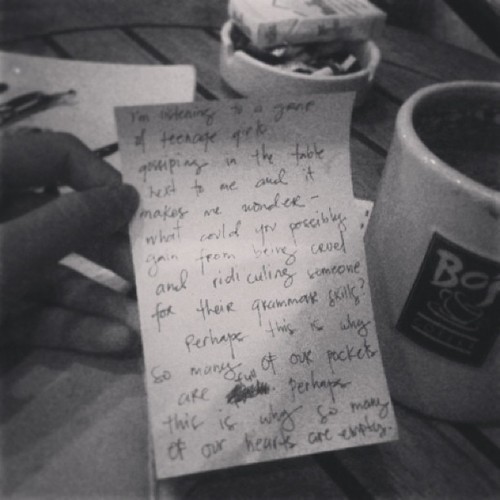 I'm listening to a gang
of teenage girls
gossiping in the table
next to me and it
makes me wonder -
what could you possibly
gain from being cruel
and ridiculing someone
for their grammar skills?
Perhaps this is why
so many of our pockets
are full. Perhaps
this is why so many
of our hearts are empty.
Bo